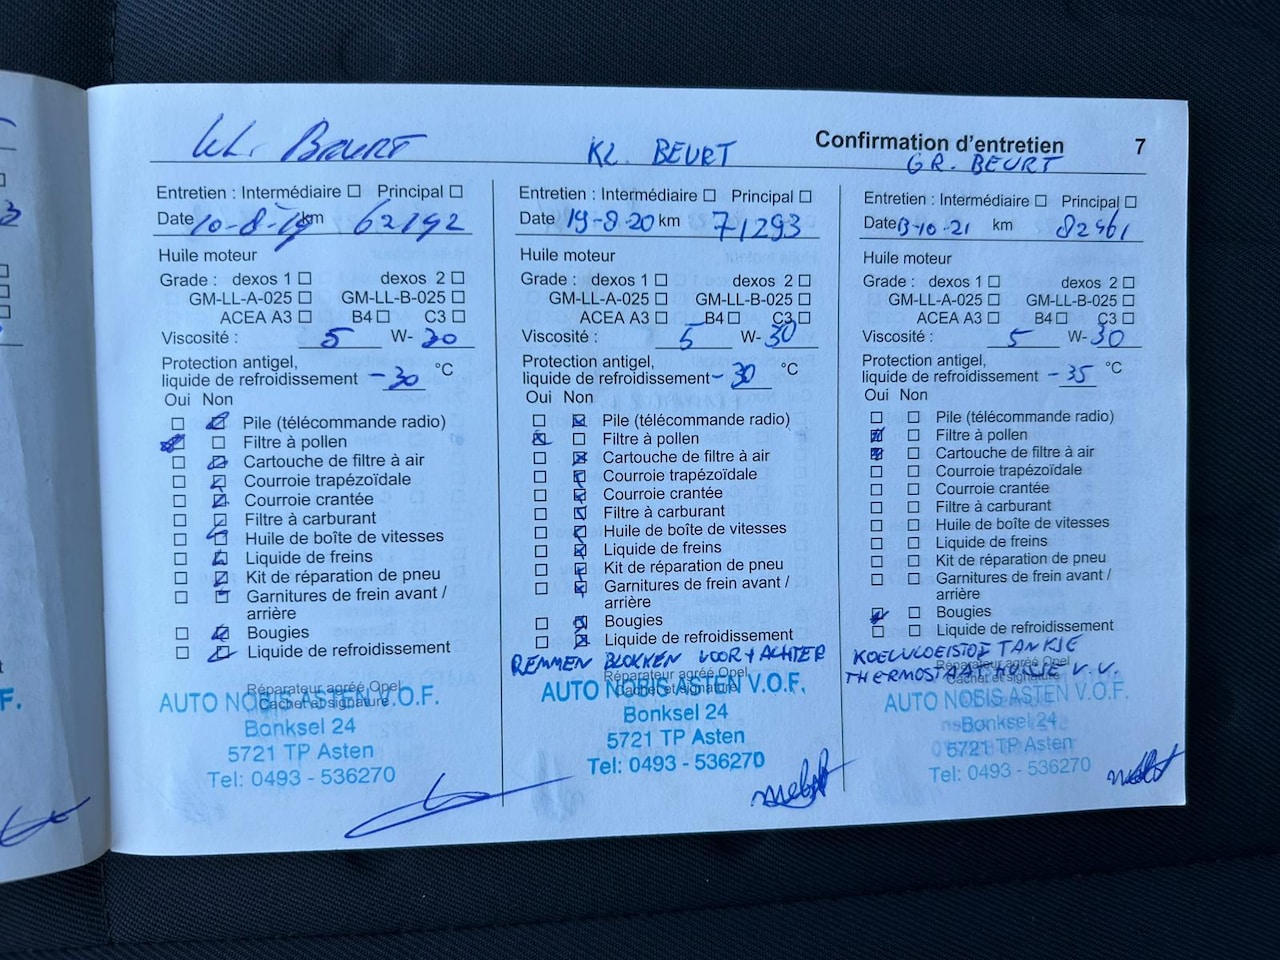 Confirmation d'entretien 7
KL. BEURT
Entretien : Intermédiaire ☐ Principal ☐
Date 10-8-19 km 62192
Huile moteur
Grade : dexos 1 ☐ dexos 2 ☐
GM-LL-A-025 ☐ GM-LL-B-025 ☐
ACEA A3 ☐ B4 ☐ C3 ☐
Viscosité : 5 W- 30
Protection antigel,
liquide de refroidissement -30 °C
Oui Non
Pile (télécommande radio)
Filtre à pollen
Cartouche de filtre à air
Courroie trapézoïdale
Courroie crantée
Filtre à carburant
Huile de boîte de vitesses
Liquide de freins
Kit de réparation de pneu
Garnitures de frein avant /
arrière
Bougies
Liquide de refroidissement
Réparateur agréé Opel
Cachet et signature
AUTO NOBIS ASTEN V.O.F.
Bonksel 24
5721 TP Asten
Tel: 0493 - 536270
KL. BEURT
Entretien : Intermédiaire ☐ Principal ☐
Date 19-8-20 km 71293
Huile moteur
Grade : dexos 1 ☐ dexos 2 ☐
GM-LL-A-025 ☐ GM-LL-B-025 ☐
ACEA A3 ☐ B4 ☐ C3 ☐
Viscosité : 5 W- 30
Protection antigel,
liquide de refroidissement -30 °C
Oui Non
Pile (télécommande radio)
Filtre à pollen
Cartouche de filtre à air
Courroie trapézoïdale
Courroie crantée
Filtre à carburant
Huile de boîte de vitesses
Liquide de freins
Kit de réparation de pneu
Garnitures de frein avant /
arrière
Bougies
Liquide de refroidissement
REMMEN BLOKKEN VOOR + ACHTER
Réparateur agréé Opel
Cachet et signature
AUTO NOBIS ASTEN V.O.F.
Bonksel 24
5721 TP Asten
Tel: 0493 - 536270
GR. BEURT
Entretien : Intermédiaire ☐ Principal ☐
Date 13-10-21 km 82461
Huile moteur
Grade : dexos 1 ☐ dexos 2 ☐
GM-LL-A-025 ☐ GM-LL-B-025 ☐
ACEA A3 ☐ B4 ☐ C3 ☐
Viscosité : 5 W- 30
Protection antigel,
liquide de refroidissement -35 °C
Oui Non
Pile (télécommande radio)
Filtre à pollen
Cartouche de filtre à air
Courroie trapézoïdale
Courroie crantée
Filtre à carburant
Huile de boîte de vitesses
Liquide de freins
Kit de réparation de pneu
Garnitures de frein avant /
arrière
Bougies
Liquide de refroidissement
KOELVLOEISTOF TANKJE
THERMOSTAATHUISJE V.V.
Réparateur agréé Opel
Cachet et signature
AUTO NOBIS ASTEN V.O.F.
Bonksel 24
5721 TP Asten
Tel: 0493 - 536270